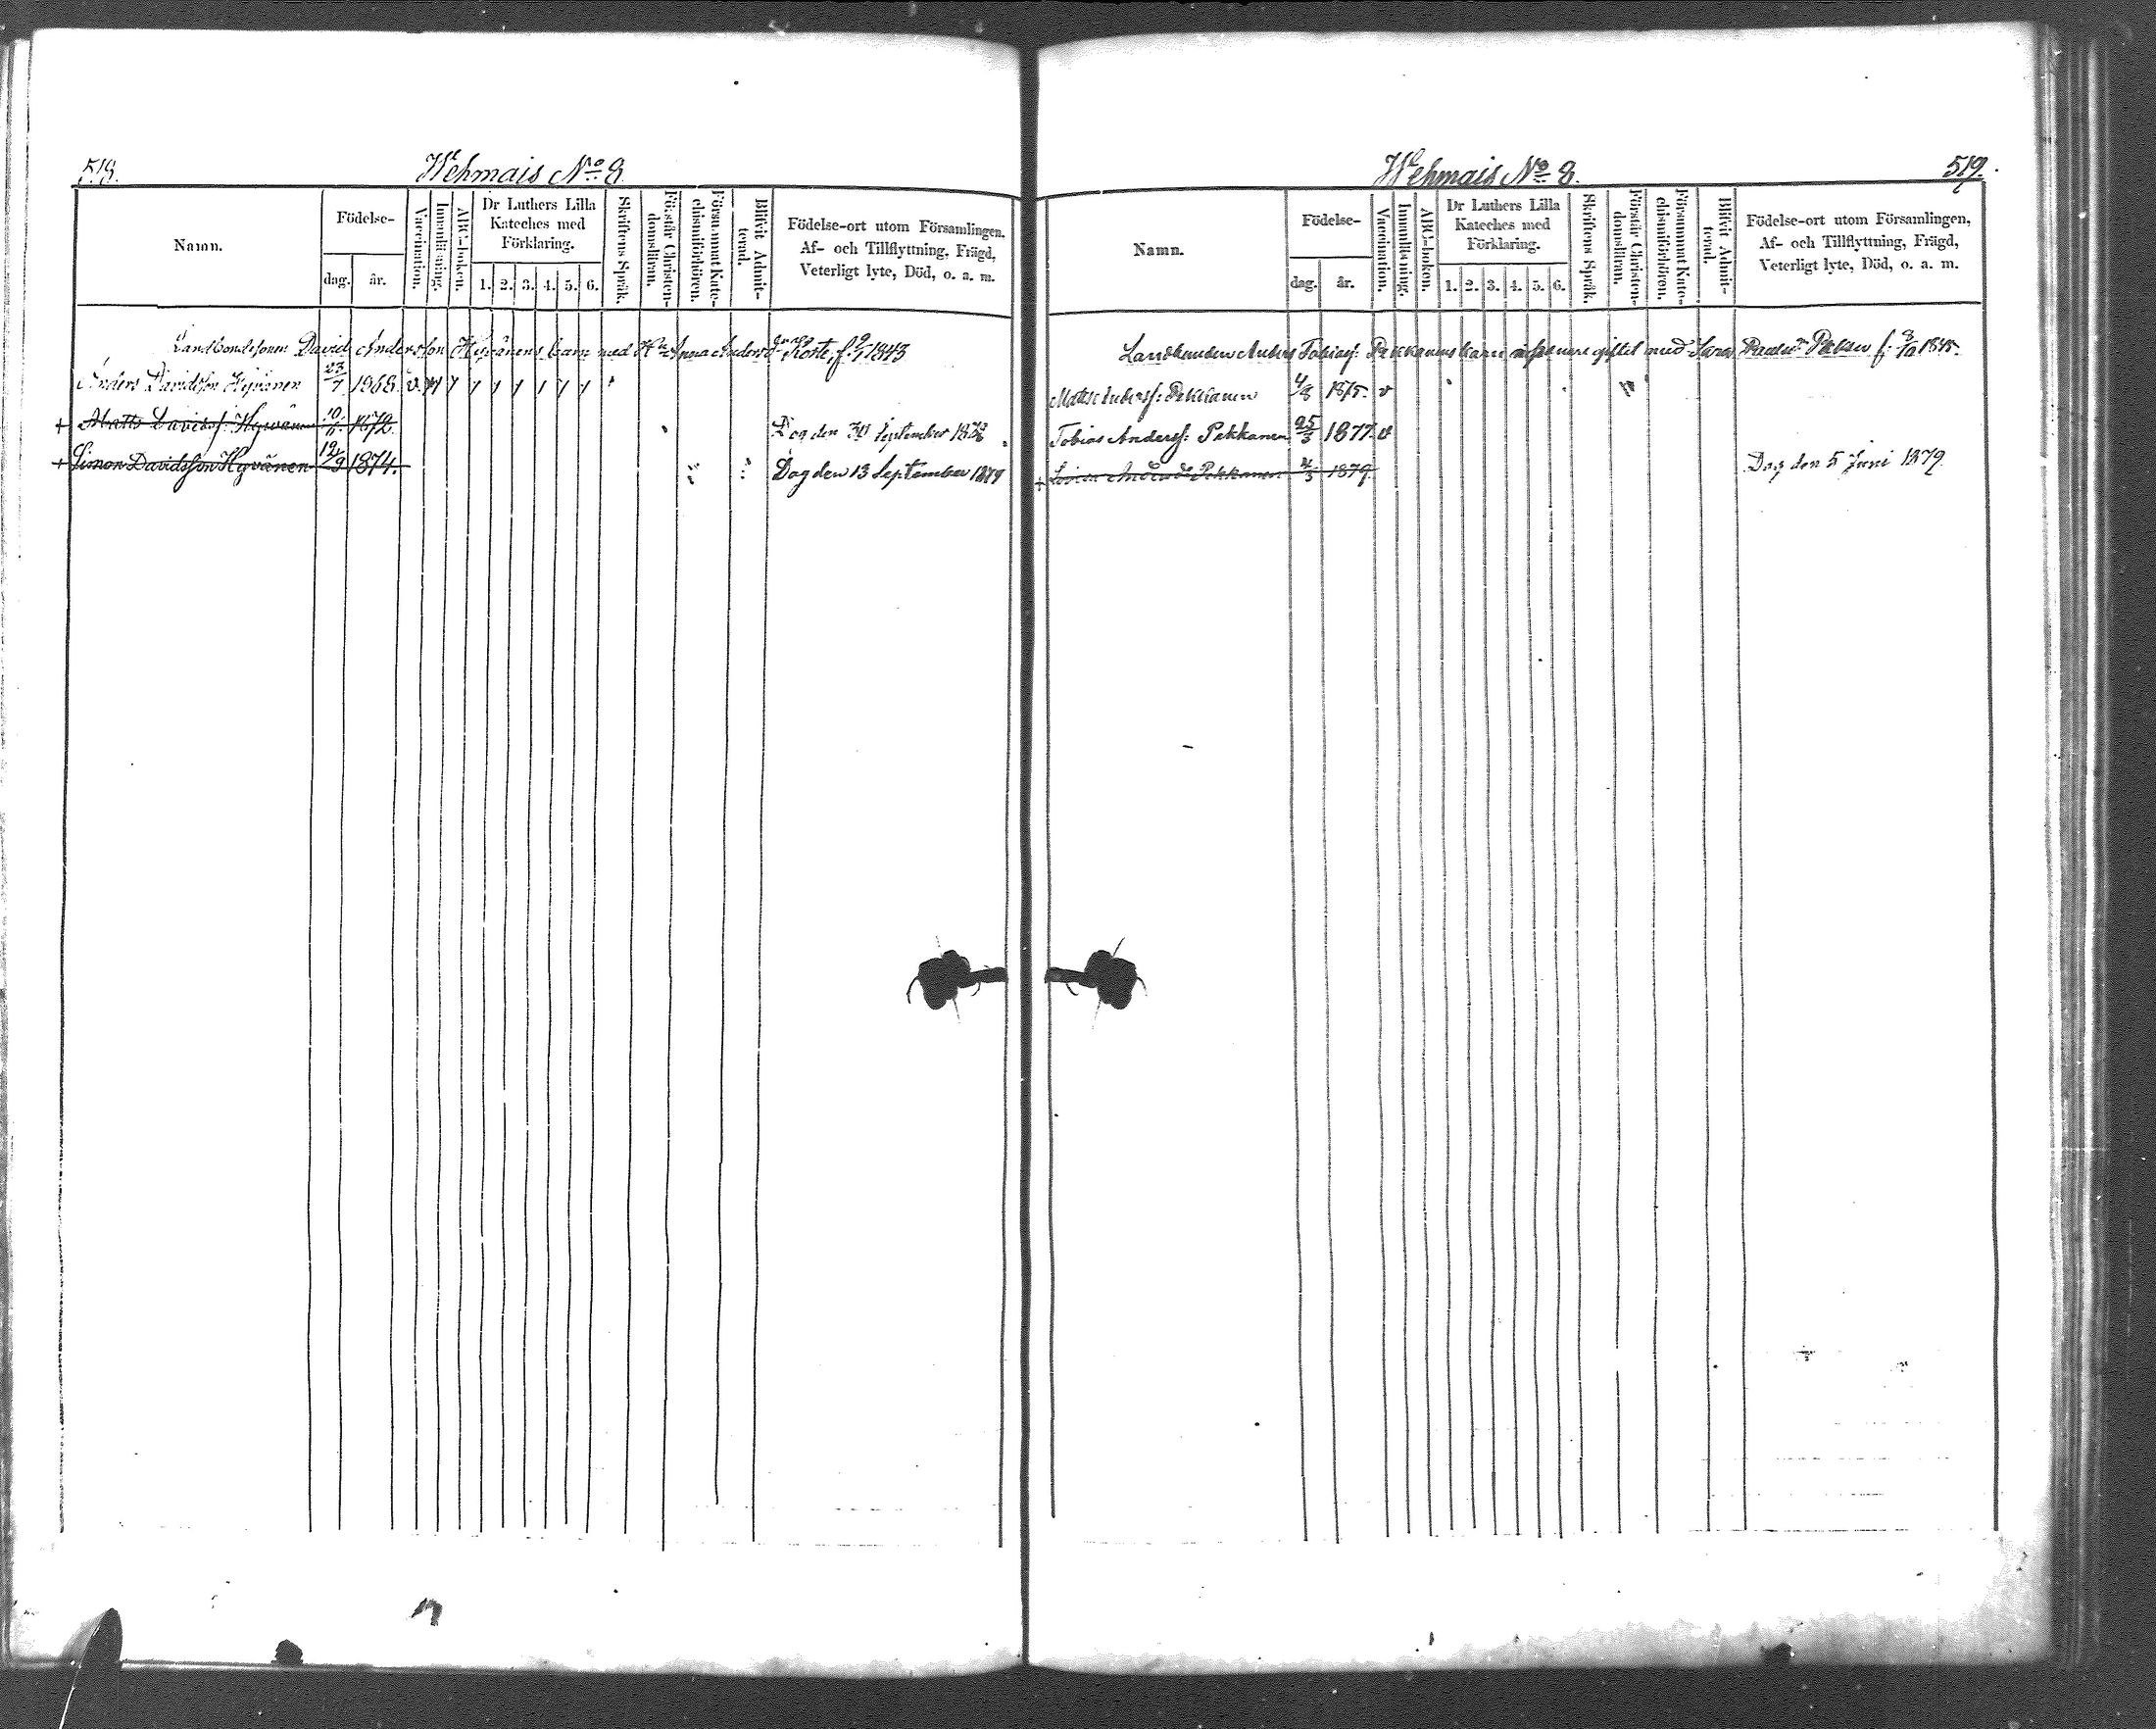 518.
Wehmais No 8.
Namn.
Födelse-
dag.
år.
Vaccination.
Innanläsning.
ABC-boken.
Dr Luthers Lilla
Kateches med
Förklaring.
1. 2. 3. 4. 5. 6.
Skriftens Språk.
Förstår Christen-
domsläran.
Försammat Kate-
chismiförhören.
Blifvit Admit-
terad.
Födelse-ort utom Församlingen,
Af- och Tillflyttning, Frägd,
Veterligt lyte, Död, o. a. m.
Landbondesonen David Andersson Hyvänens barn med Hu Anna Andersdr Roste, f. 1843
Anders Davidsson Hyvänen 23/7 1868. v
+ Matts Davidss: Hyvänen 1872. Dog den 30 September
+ Simon Davidsson Hyvänen 12/9 1874. Dog den 13 September 1879
Wehmais No 8.
519.
Namn.
Födelse-
dag.
år.
Vaccination.
Innanläsning.
ABC-boken
Dr Luthers Lilla
Kateches med
Förklaring.
1. 2. 3. 4. 5. 6.
Skriftens Språk.
Förstår Christen-
domsläran.
Försammat Kate-
chismiförhören.
Blifvit Admit-
terad.
Födelse-ort utom Församlingen,
Af- och Tillflyttning, Frägd,
Veterligt lyte, Död, o. a. m.
Landbonden Anders Tobiass: Pekkanens barn giftet med Sara Paulsdr f.
Matts Anderss: Pekkanen 4/8 1875. v
Tobias Anderss: Pekkanen 25/3 1877. v
+ Pekkanen 1879. Dog den 5 Juni 1879.